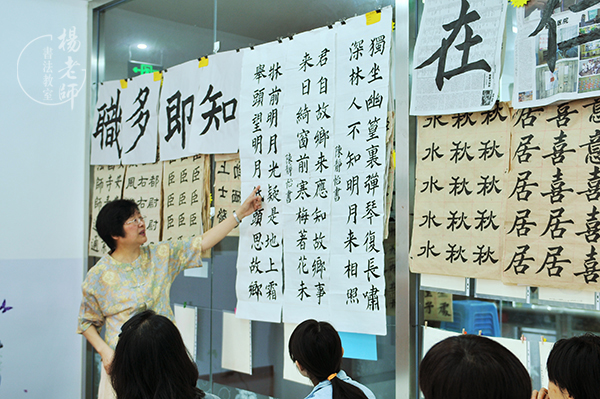 楊老師
書法教室
知即
多職
獨坐幽篁裏彈琴復長嘯
深林人不知明月來相照
陳靜怡書
君自故鄉來應知故鄉事
來日綺窗前寒梅著花未
陳靜怡書
牀前明月光疑是地上霜
舉頭望明月 頭思故鄉
在
喜喜喜喜
居居居居
秋秋秋秋
秋秋秋秋
水水水水
臣臣臣
臣臣臣